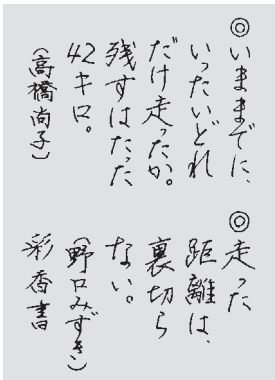 ◎いままでに、
いったいどれ
だけ走ったか。
残すはたった
42キロ。
(高橋尚子)
◎走った
距離は、
裏切ら
ない。
(野口みずき)
彩香書